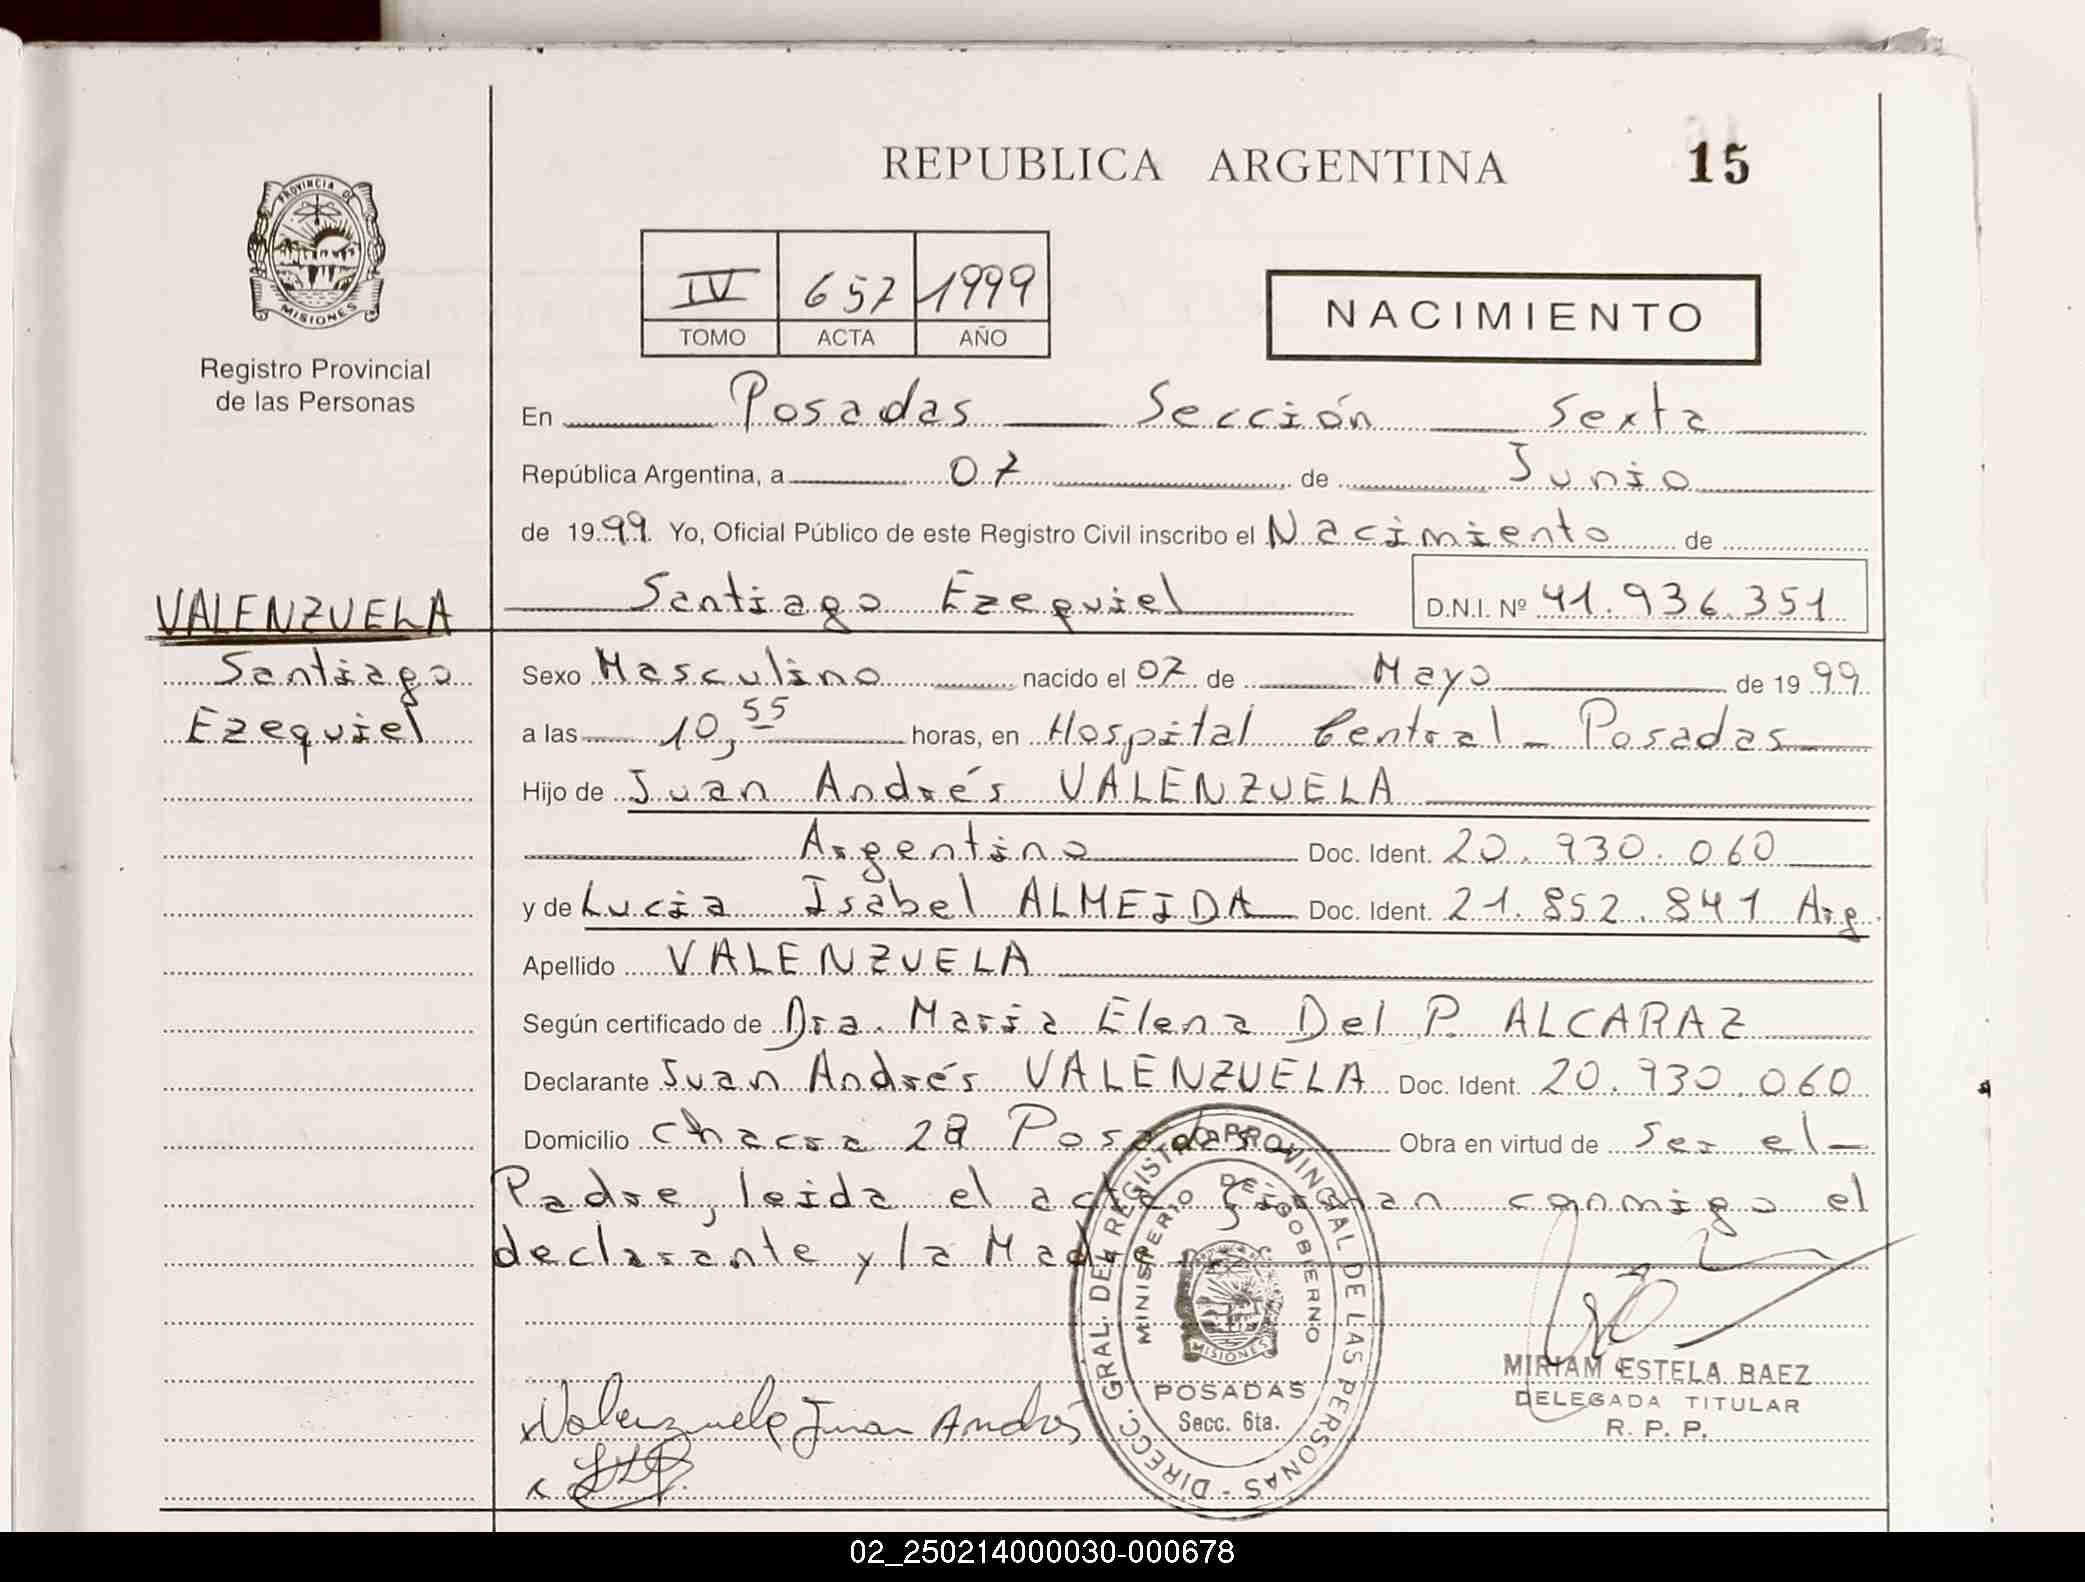 REPUBLICA ARGENTINA
15
PROVINCIA DE
MISIONES
Registro Provincial
de las Personas
IV 657 1999
TOMO ACTA AÑO
NACIMIENTO
En Posadas Sección Sexta
República Argentina, a 07 de Junio
de 1999 Yo, Oficial Público de este Registro Civil inscribo el Nacimiento de
Santiago Ezequiel D.N.I. Nº 41.936.351
VALENZUELA
Santiago
Ezequiel
Sexo Masculino nacido el 07 de Mayo de 1999
a las 10,55 horas, en Hospital Central - Posadas
Hijo de Juan Andrés VALENZUELA
Argentino Doc. Ident. 20.930.060
y de Lucia Isabel ALMEIDA Doc. Ident. 21.852.841 Arg.
Apellido VALENZUELA
Según certificado de Dra. Maria Elena Del P. ALCARAZ
Declarante Juan Andrés VALENZUELA Doc. Ident. 20.930.060
Domicilio Chacra Posadas Obra en virtud de ser el
Padre, leida el acta firman conmigo el
declarante y la Madre
DIRECC. GRAL. DEL REGISTRO PROVINCIAL DE LAS PERSONAS -
MINISTERIO DE GOBIERNO
MISIONES
POSADAS
Secc. 6ta.
MIRIAM ESTELA BAEZ
DELEGADA TITULAR
R. P. P.
x Valenzuela Juan Andrés
x
02_250214000030-000678